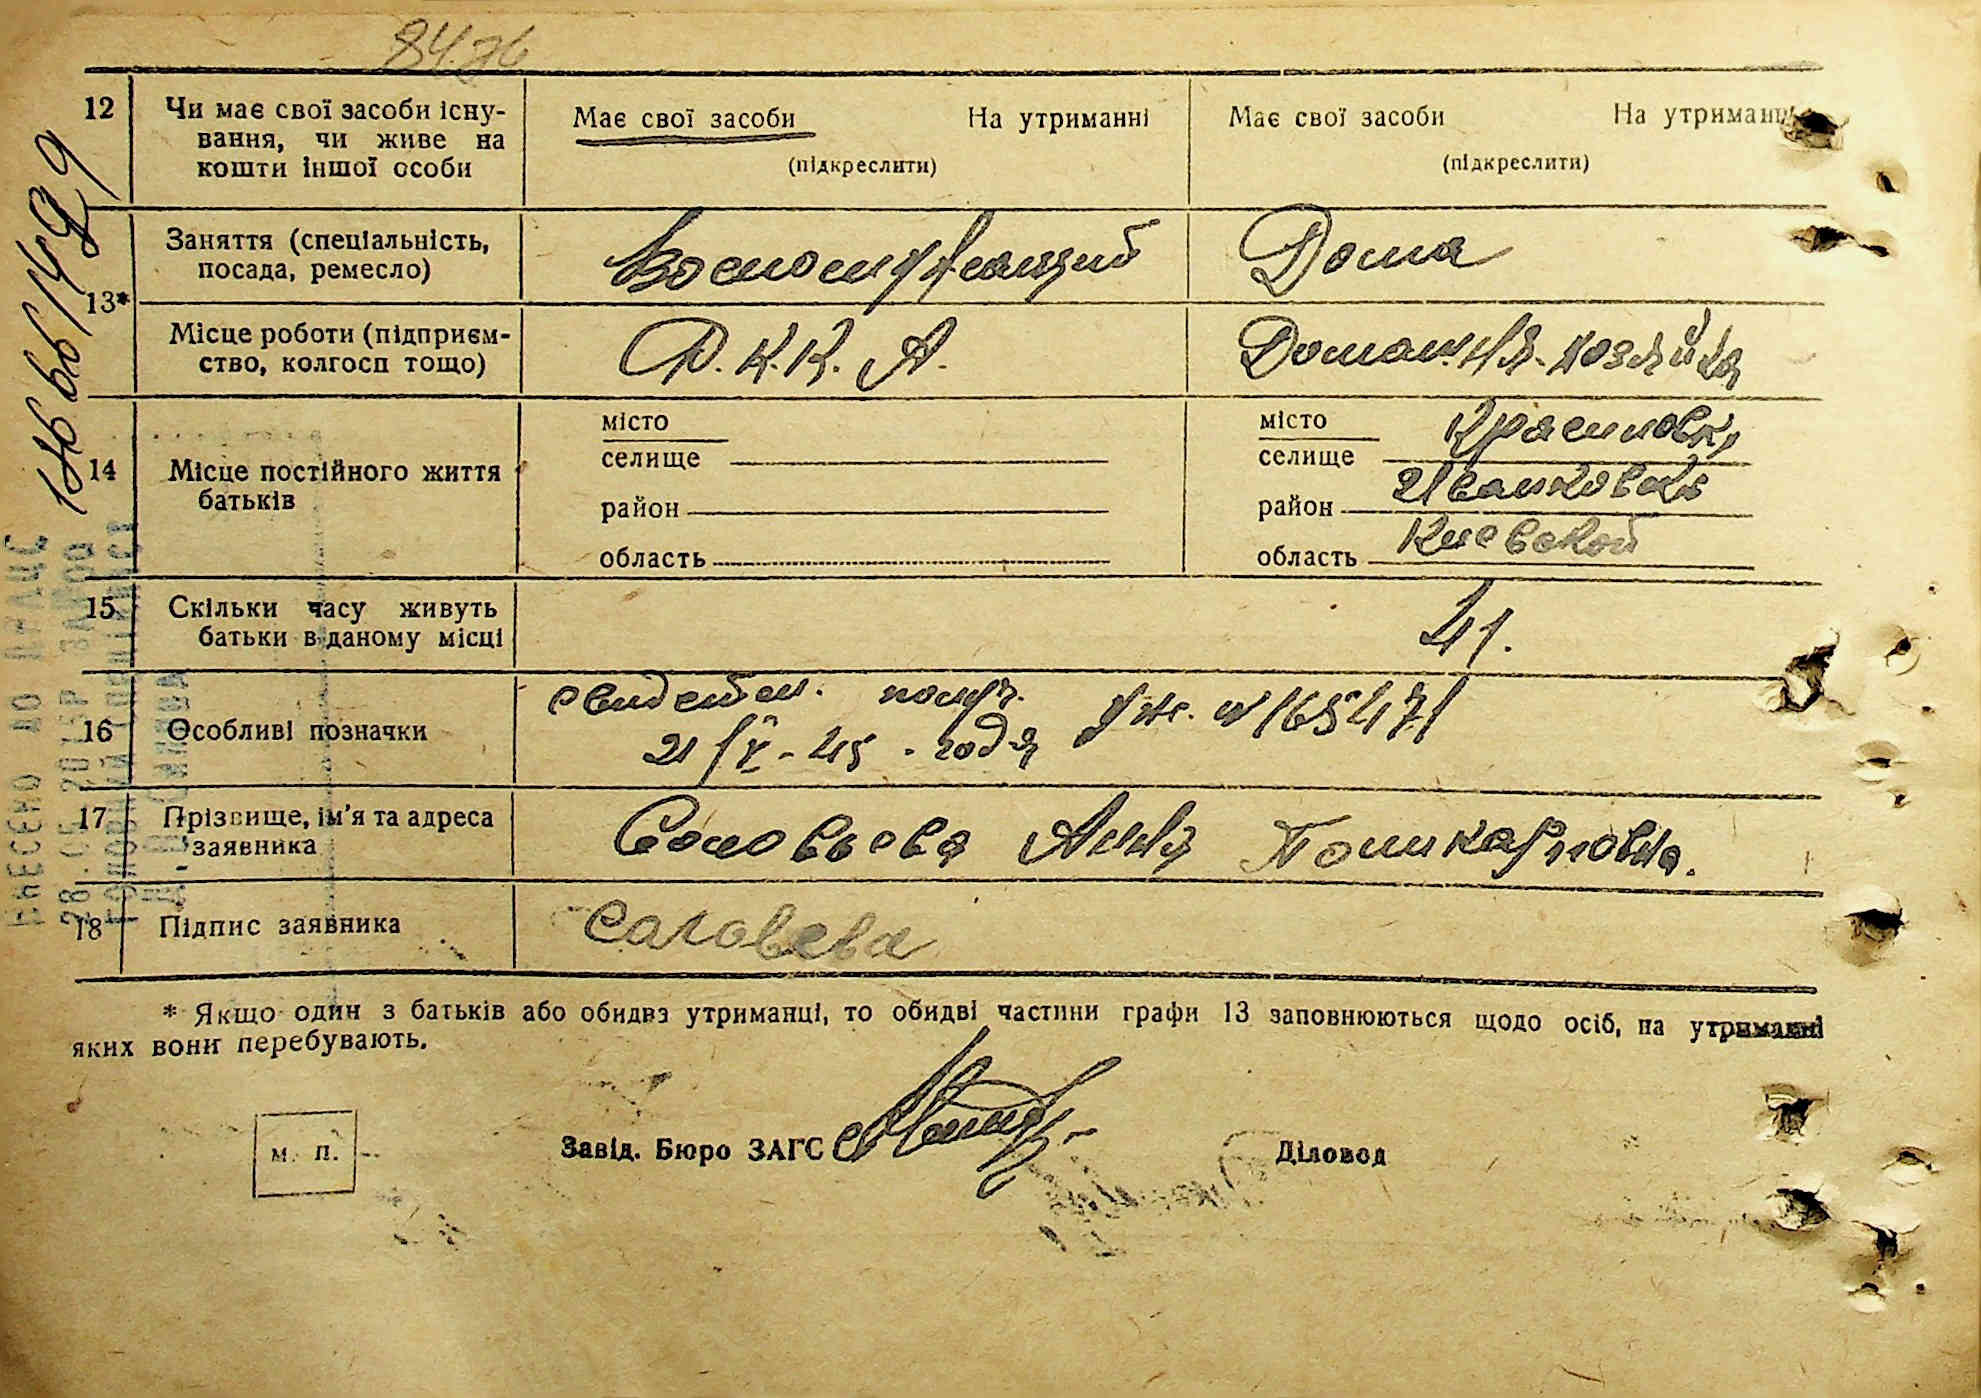 84.26
12 Чи має свої засоби існу- Має свої засоби На утриманні Має свої засоби На утриманні
вання, чи живе на
кошти іншої особи (підкреслити) (підкреслити)
Заняття (спеціальність, Военнослужащий Дома
посада, ремесло)
13*
Місце роботи (підприєм- Р.К.К.А. Домашняя хозяйка
ство, колгосп тощо)
місто місто Красиловк,
селище селище
14 Місце постійного життя район район Иванковск
батьків
область область Киевской
15 Скільки часу живуть 41.
батьки в даному місці
свидетел. получ. уж. № 165471
16 Особливі позначки 21/V-45. года
17 Прізвище, ім'я та адреса Соловьева Анна Поликарповна.
заявника
18 Підпис заявника Саловева
* Якщо один з батьків або обидва утриманці, то обидві частини графи 13 заповнюються щодо осіб, на утриманні
яких вони перебувають.
м. п. Завід. Бюро ЗАГС Діловод
ВНЕСЕНО ДО